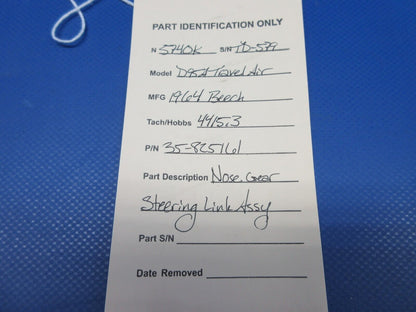 PART IDENTIFICATION ONLY
N 5740K S/N TD-579
Model D95A Travel Air
MFG 1964 Beech
Tach/Hobbs 4415.3
P/N 35-825161
Part Description Nose Gear
Steering Link Assy
Part S/N
Date Removed